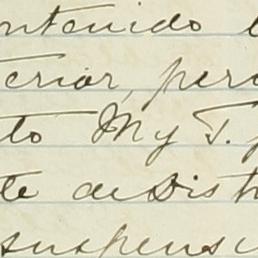 ntenido
terior, pero
to My T.
te deDist
suspens